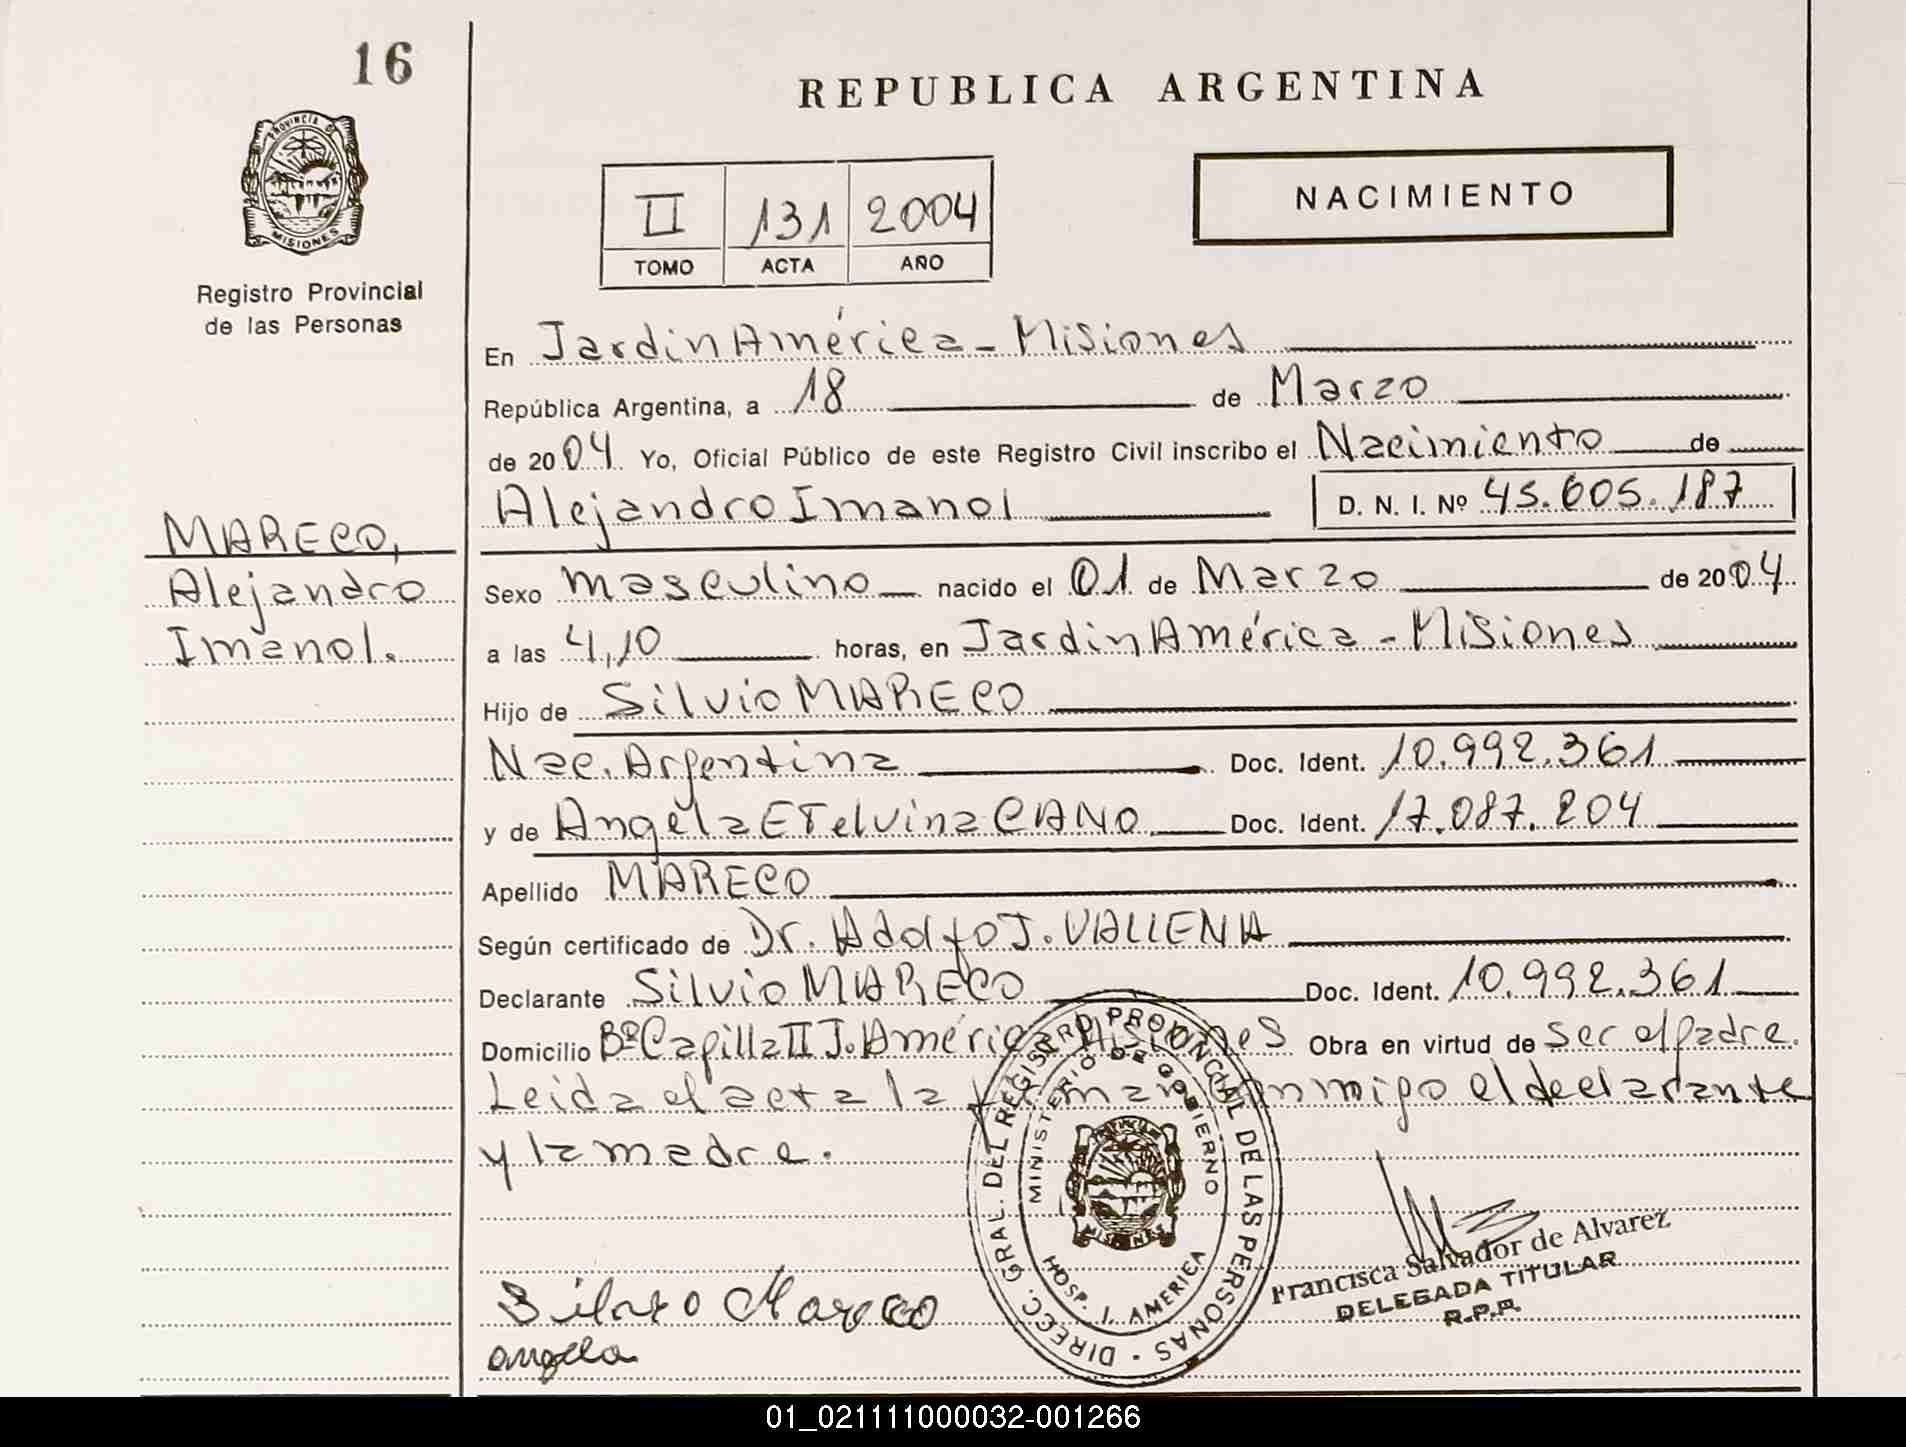 16
REPUBLICA ARGENTINA
PROVINCIA DE
MISIONES
Registro Provincial
de las Personas
II 131 2004
TOMO ACTA AÑO
NACIMIENTO
En Jardin América - Misiones
República Argentina, a 18 de Marzo
de 2004 Yo, Oficial Público de este Registro Civil inscribo el Nacimiento de
Alejandro Imanol D. N. I. Nº 45.605.187
MARECO,
Alejandro
Imanol.
Sexo masculino nacido el 01 de Marzo de 2004
a las 4,10 horas, en Jardin América - Misiones
Hijo de Silvio MARECO
Nac. Argentina Doc. Ident. 10.992.361
y de Angela ETelvina CANO Doc. Ident. 17.087.204
Apellido MARECO
Según certificado de Dr. Adolfo J. VALLENA
Declarante Silvio MARECO Doc. Ident. 10.992.361
Domicilio Bº Capilla II J. América Misiones Obra en virtud de ser el padre.
Leida el acta la firman conmigo el declarante
y la madre.
DIRECC. GRAL. DEL REGISTRO PROVINCIAL DE LAS PERSONAS
MINISTERIO DE GOBIERNO
MISIONES
HOSP. J. AMERICA
Silvio Mareco
angela
Francisca Salvador de Alvarez
DELEGADA TITULAR
R.P.P.
01_021111000032-001266